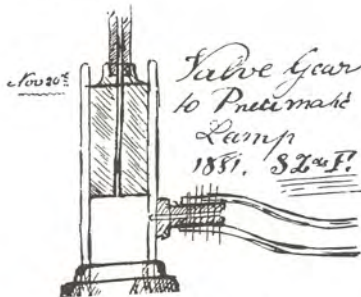 Nov 20th
Valve Gear
to Pneumatic
Lamp
1881.